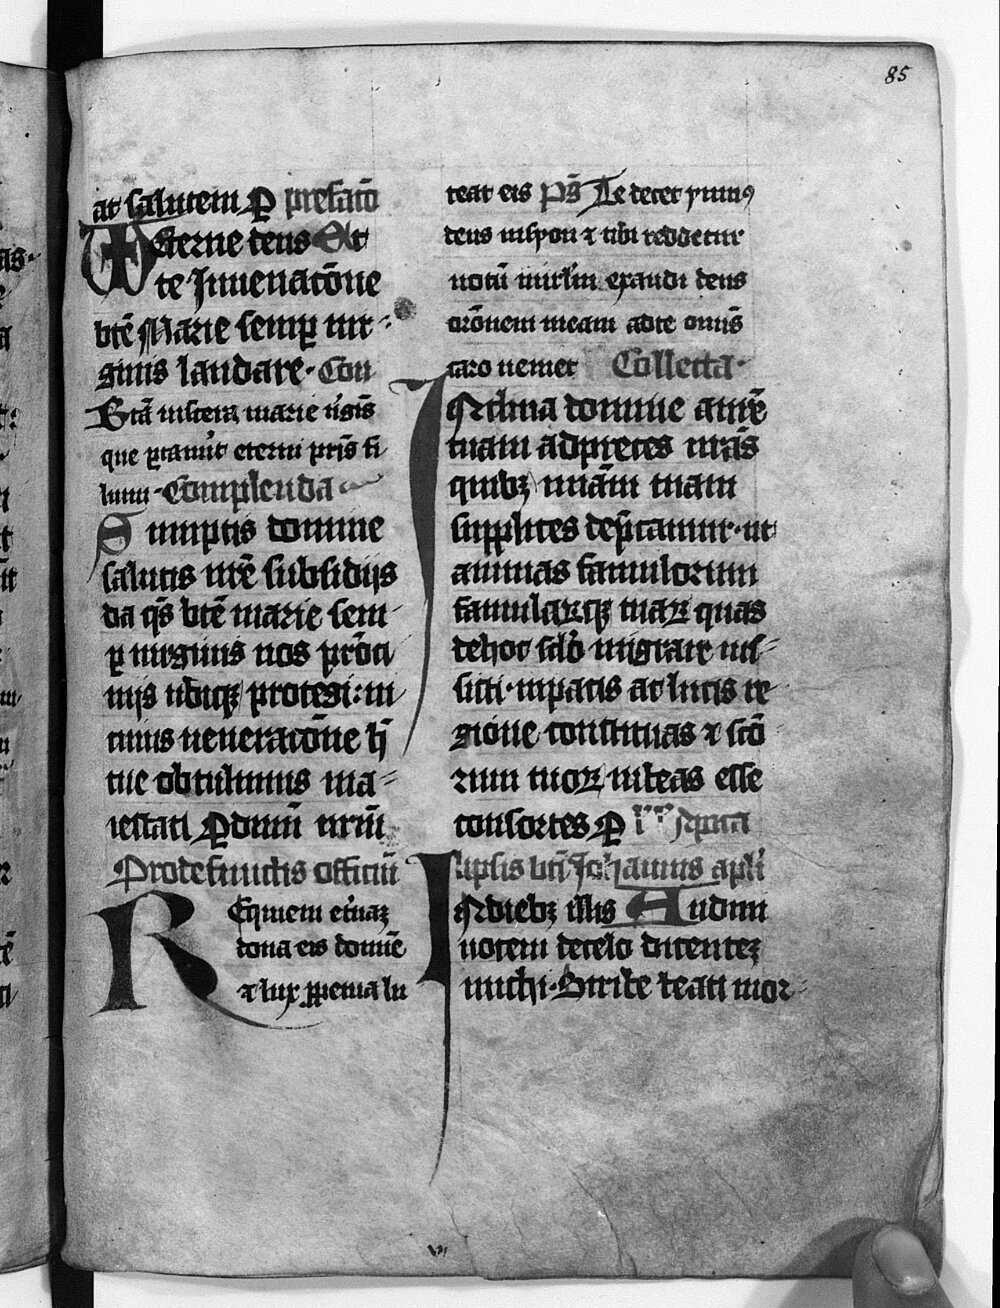 85
at salutem P prefatō
Eterne deus Et
te Inuenatōne
btē Marie semp uir⸗
ginis laudare. Con
Btā uiscera marie ṽgīs
que portauīt eterni pr̄is fi
lium. Complenda
Sumptis domine
salutis nr̄e subsidijs
da qs̄ btē marie sem
ꝑ uirginis nos prōci
nijs ubiqꝫ protegi: in
cuius ueneratōne h̄
tue obtulimus ma⸗
iestati P dnm̄ nrm̄
Pro defunctis officiū
Requiem et̄naꝫ
dona eis domīe
⁊ lux ꝑpetua lu
ceat eis Ps̄ Te decet ymnꝰ
deus insyon ⁊ tibi reddetur
uotū inirl̄m exaudi deus
orōnem meam adte omīs
caro ueniet Collecta.
Inclina domine aurē
tuam adpreces nrās
quibꝫ miam̄ tuam
supplices dep̄camur. ut
animas famulorum
famulaꝝqꝫ tuaꝝ quas
dehoc sclō migrare ius⸗
sisti. inpacis ac lucis re
gione constituas ⁊ scō
rum tuoꝝ iubeas esse
consortes P Apoca
lipsis bti Johannis apli
In diebꝫ illis Audiui
uocem decelo dicentez
michi. Scribe beati mor⸗